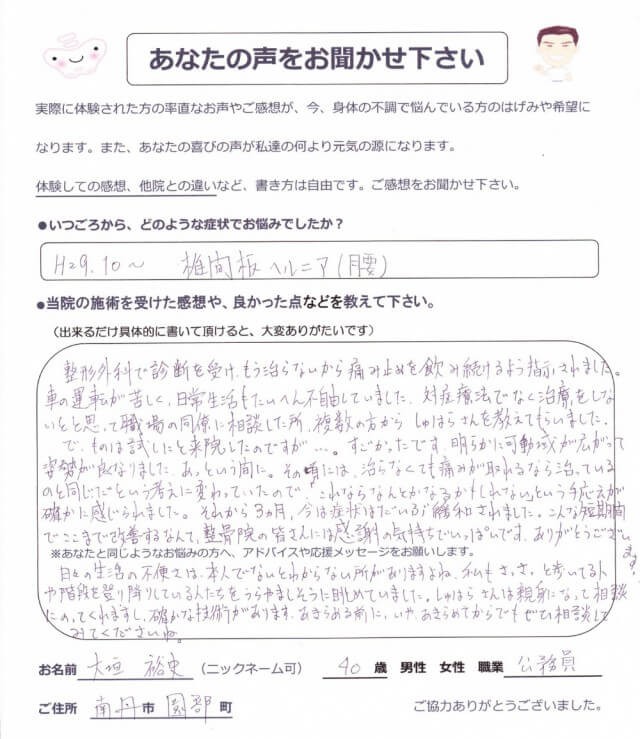 あなたの声をお聞かせ下さい
実際に体験された方の率直なお声やご感想が、今、身体の不調で悩んでいる方のはげみや希望に
なります。また、あなたの喜びの声が私達の何より元気の源になります。
体験しての感想、他院との違いなど、書き方は自由です。ご感想をお聞かせ下さい。
●いつごろから、どのような症状でお悩みでしたか？
H29.10～ 椎間板ヘルニア(腰)
●当院の施術を受けた感想や、良かった点などを教えて下さい。
（出来るだけ具体的に書いて頂けると、大変ありがたいです）
整形外科で診断を受け、もう治らないから痛み止めを飲み続けるよう指示されました。
車の運転が苦しく、日常生活もたいへん不自由していました。対症療法でなく治療をしな
いとと思って職場の同僚に相談した所、複数の方から しゅはらさんを教えてもらいました。
で、ものは試しにと来院したのですが…。すごかったです。明らかに可動域が広がって
姿勢が良くなりました。あっという間に。その頃には、治らなくても痛みが取れるなら治っている
のと同じだという考えに変わっていたので、これならなんとかなるかもしれないという手応えが
確かに感じられました。それから3ヵ月、今は症状はだいぶ緩和されました。こんな短期間
でここまで改善するなんて、整骨院の皆さんには感謝の気持ちでいっぱいです。ありがとうござい
ます。
※あなたと同じようなお悩みの方へ、アドバイスや応援メッセージをお願いします。
日々の生活の不便さは、本人でないとわからない所がありますよね。私もさっさっと歩いてる人
や階段を登り降りしている人たちをうらやましそうに眺めていました。しゅはらさんは親身になって相談
にのってくれますし、確かな技術があります。あきらめる前に、いや、あきらめてからでもぜひ相談して
みてくださいね。
お名前 大垣 裕史 （ニックネーム可） 40 歳 男性 女性 職業 公務員
ご住所 南丹市 園部町 ご協力ありがとうございました。